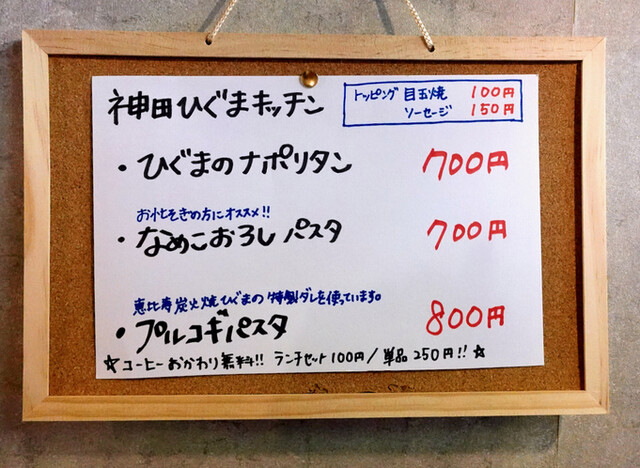 神田ひぐまキッチン
トッピング 目玉焼 100円
ソーセージ 150円
・ひぐまのナポリタン 700円
お忙そぎの方にオススメ!!
・なめこおろしパスタ 700円
恵比寿炭火焼ひぐまの特製ダレを使っています。
・プルコギパスタ 800円
☆コーヒーおかわり無料!! ランチセット100円/単品250円!!☆